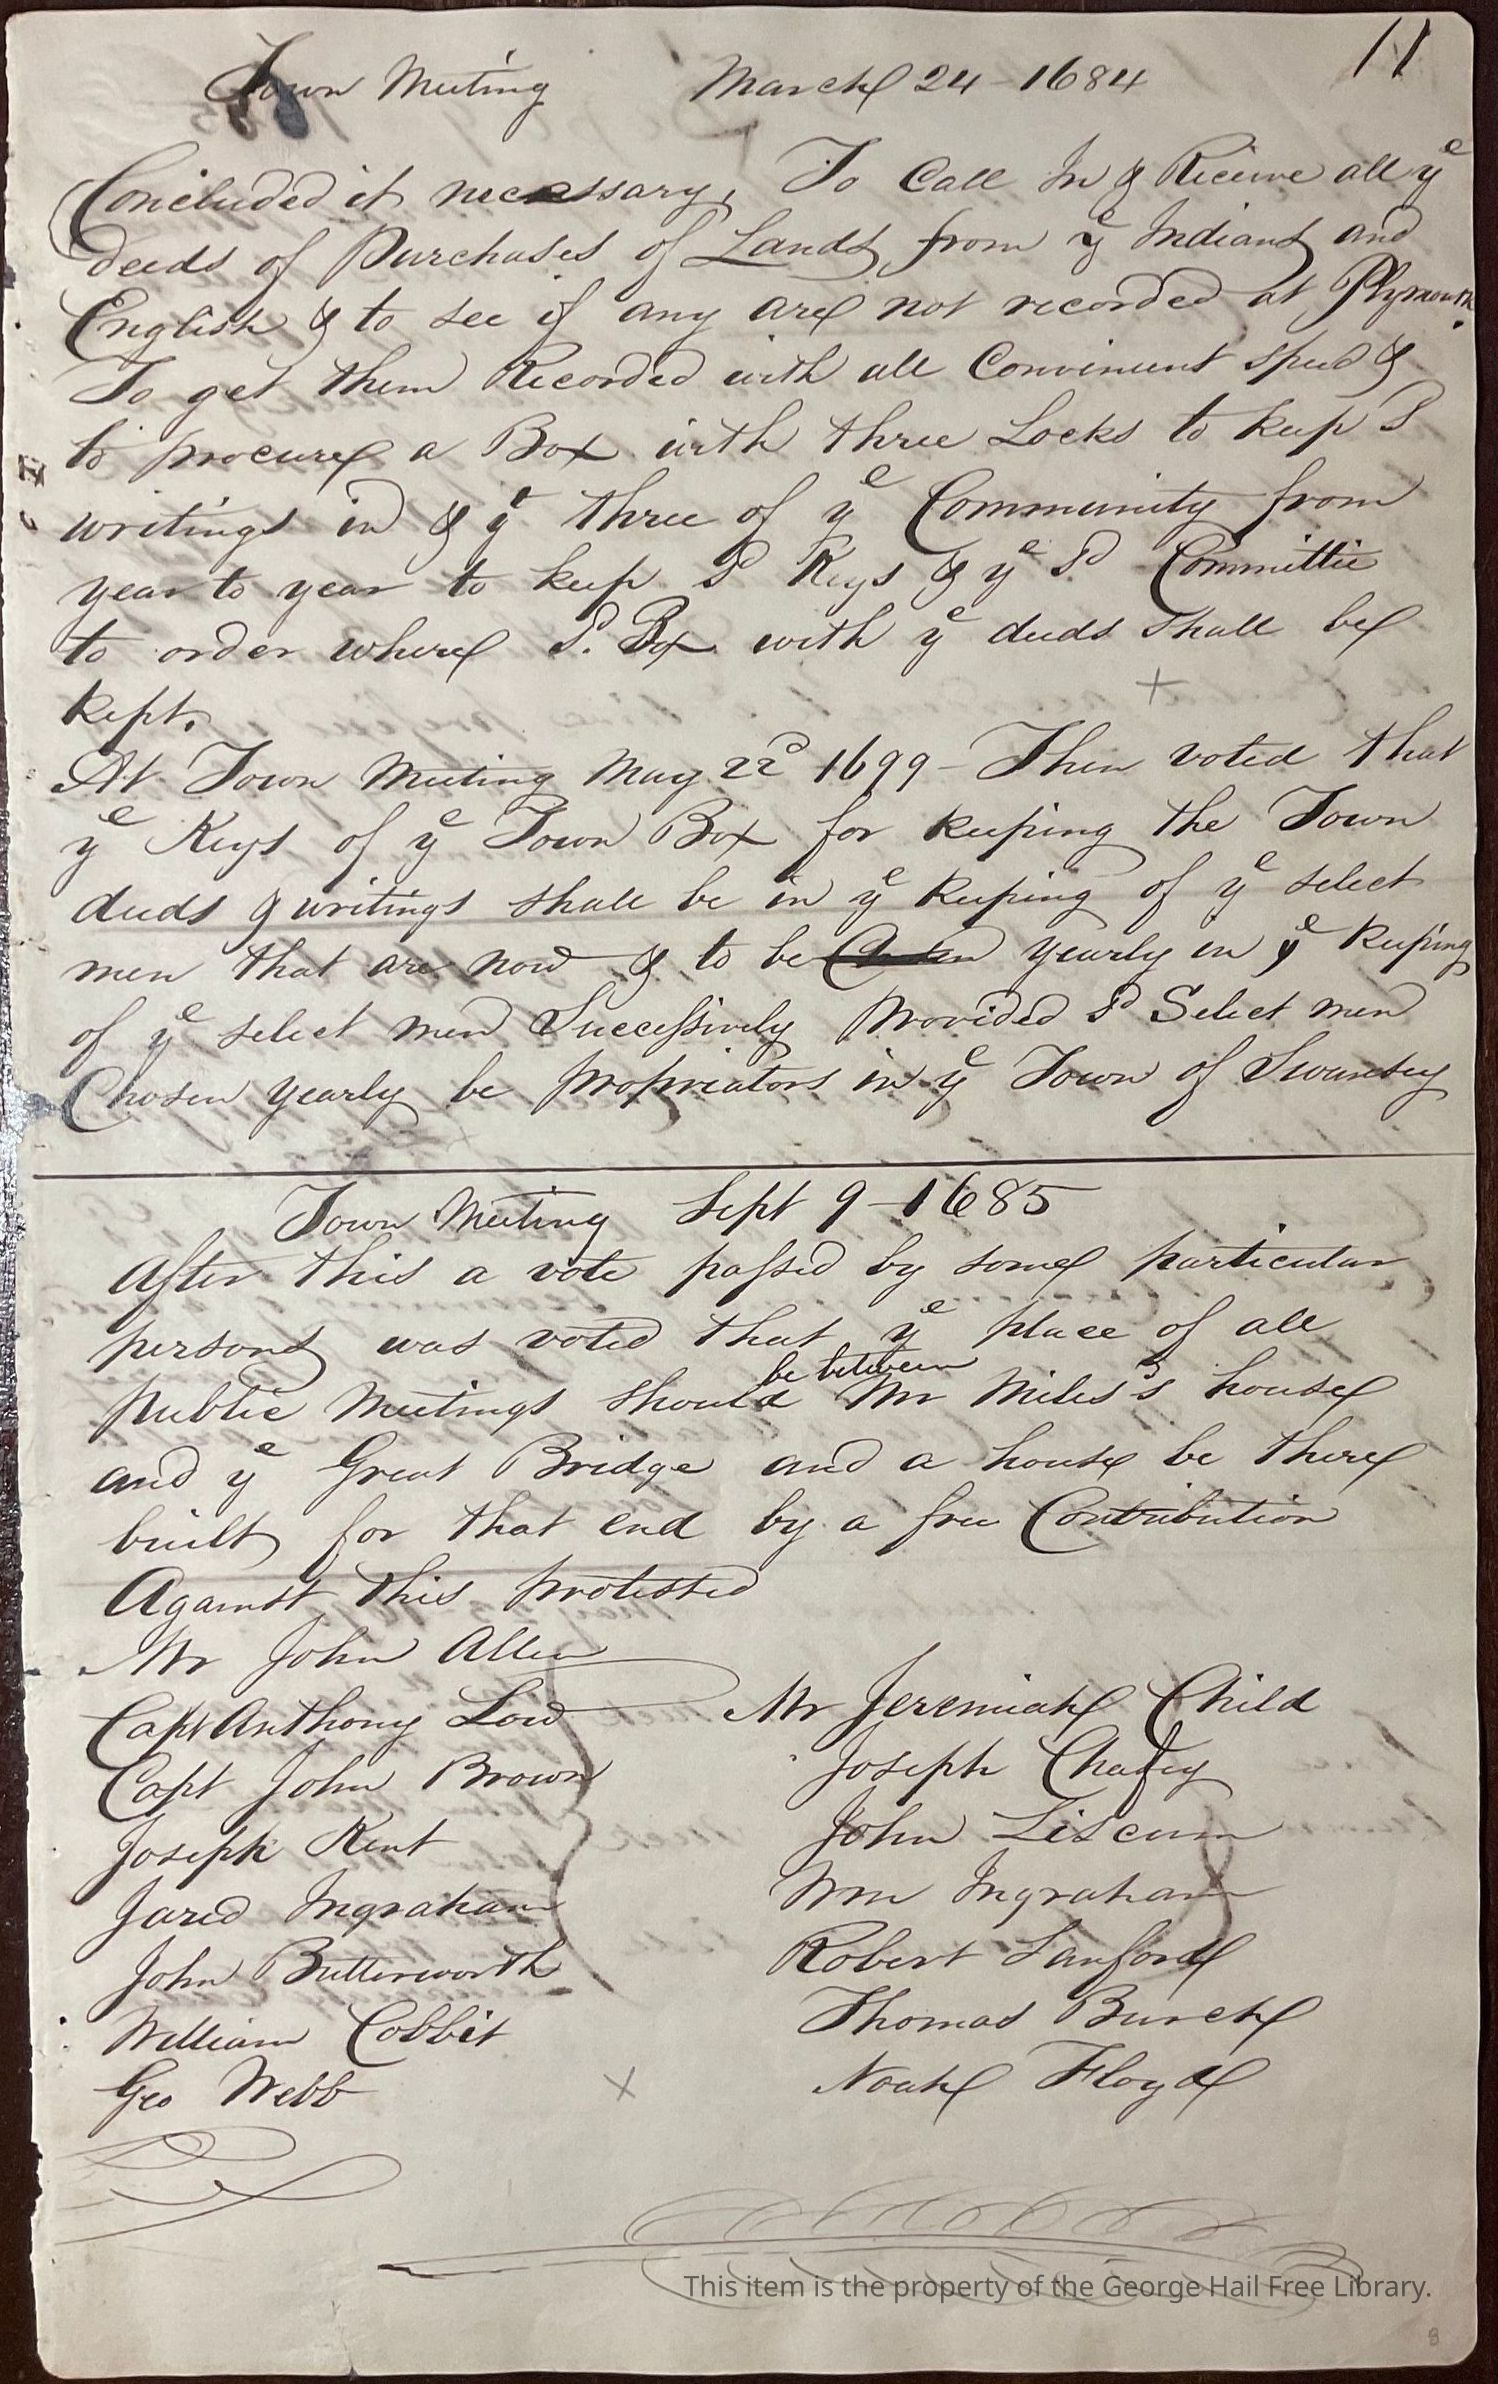 11
Town Meeting March 24 - 1684
Concluded it necessary, To Call In & Receive all yᵉ
deeds of Purchases of Lands from yᵉ Indians and
English & to see if any are not recorded at Plymouth.
To get them Recorded with all Convinient speed &
to procure a Box with three Locks to keep Sᵈ
writings in & yᵉ three of yᵉ Community from
year to year to keep Sᵈ Keys & yᵉ Sᵈ Committie
to order where Sᵈ. Box with yᵉ deeds shall be
kept.
At Town Meeting May 22ᵈ 1699 - Then voted that
yᵉ Keys of yᵉ Town Box for keeping the Town
deeds & writings shall be in yᵉ keeping of yᵉ select
men that are now & to be yearly in yᵉ keeping
of yᵉ select men Successively Provided Sᵈ Select men
Chosen yearly be propriators in yᵉ Town of Swansey
Town Meeting Sept 9 - 1685
After this a vote passed by some particular
persons was voted that yᵉ place of all
public Meetings should be between Mr Miles's house
and yᵉ Great Bridge and a house be there
built for that end by a free Contribution
Against this protested
Mr John Allen
Capt Anthony Low Mr Jeremiah Child
Capt John Brown Joseph Chafey
Joseph Kent John Liscum
Jared Ingraham Wm Ingraham
John Butterworth Robert Sanford
William Cobbit Thomas Burch
Geo Webb Noah Floyd
This item is the property of the George Hail Free Library.
8